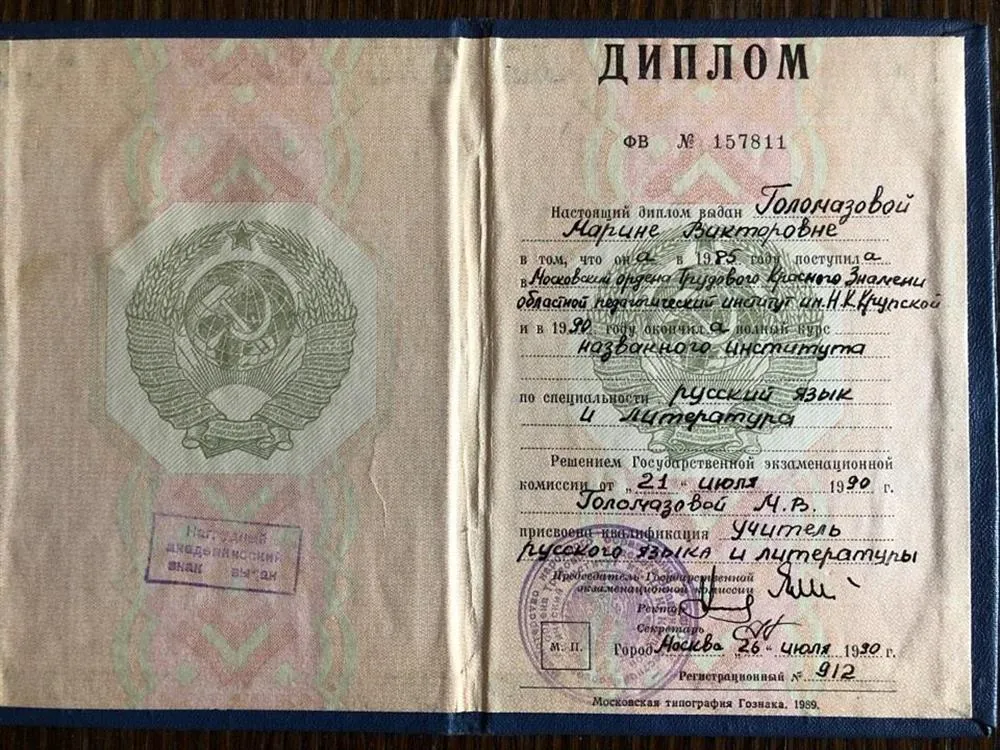 Нагрудный
академический
знак выдан
ДИПЛОМ
ФВ № 157811
Настоящий диплом выдан Голомазовой
Марине Викторовне
в том, что она в 1985 году поступила
в Московский ордена Трудового Красного Знамени
областной педагогический институт им. Н.К.Крупской
и в 1990 году окончила полный курс
названного института
по специальности русский язык
и литература
Решением Государственной экзаменационной
комиссии от „21“ июля 1990 г.
Голомазовой М.В.
присвоена квалификация учитель
русского языка и литературы
Председатель Государственной
экзаменационной комиссии
Ректор
Секретарь
М. П.
Город Москва „26“ июля 1990 г.
Регистрационный № 912
Московская типография Гознака. 1989.